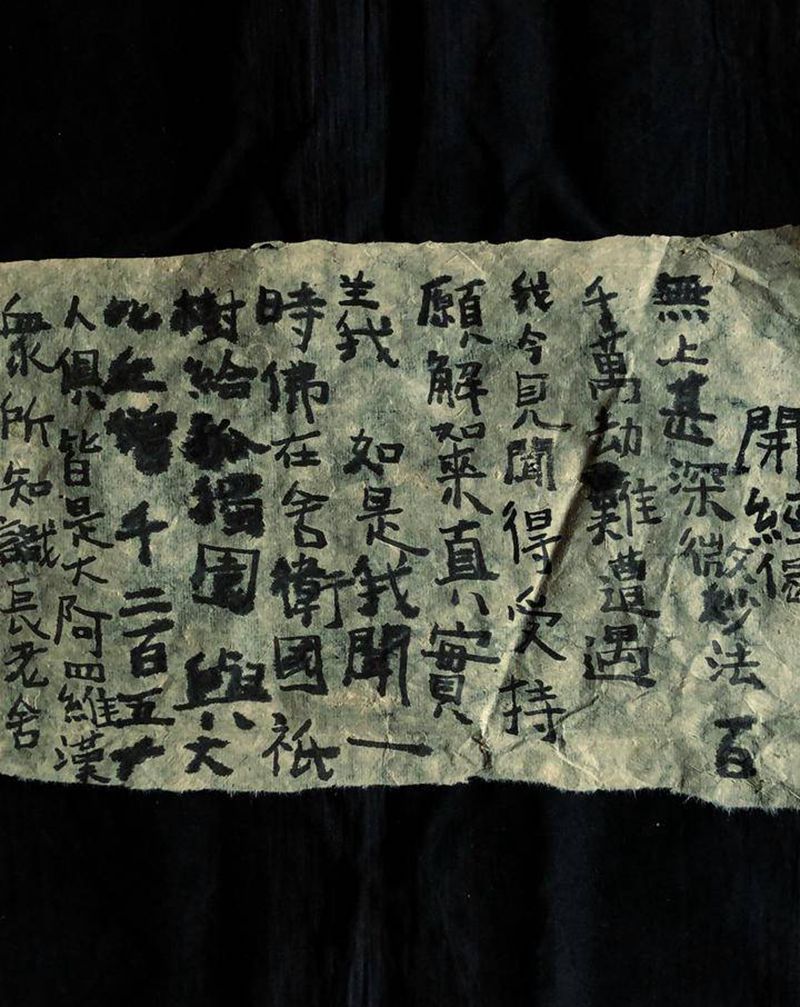 開經偈
無上甚深微妙法 百
千萬劫難遭遇
我今見聞得受持
願解如來真實
生我 如是我聞 一
時佛在舍衛國 祇
樹給孤獨園 與大
比丘僧 千二百五十
人俱皆是大阿羅漢
衆所知識長老舍